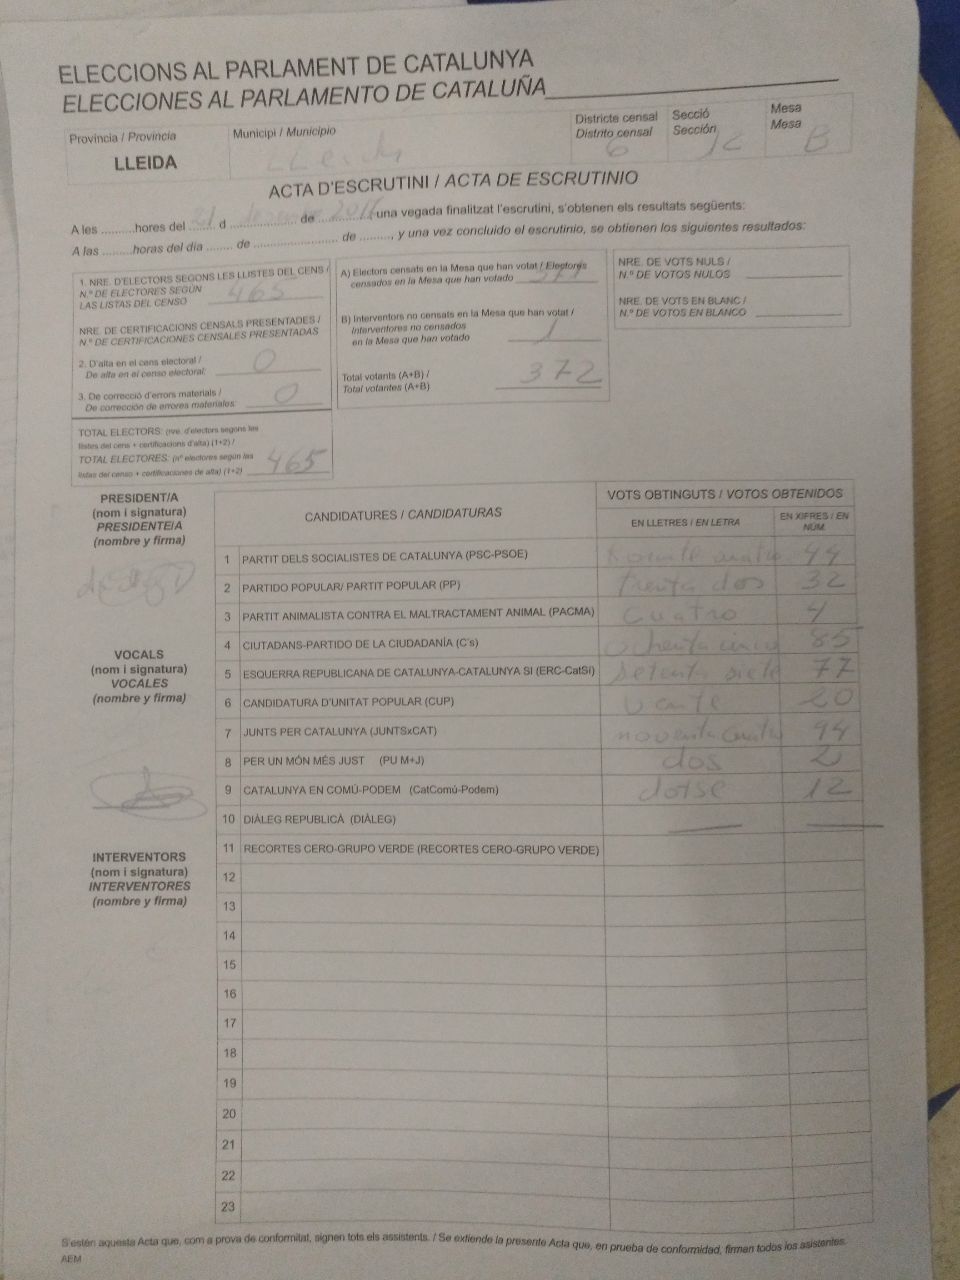 ELECCIONS AL PARLAMENT DE CATALUNYA
ELECCIONES AL PARLAMENTO DE CATALUÑA
Provincia / Provincia
LLEIDA
Municipi / Municipio
LLeida
Districte censal
Distrito censal
6
Secció
Sección
12
Mesa
Mesa
B
ACTA D'ESCRUTINI / ACTA DE ESCRUTINIO
A les ..........hores del 21 d ................... de ............. una vegada finalitzat l'escrutini, s'obtenen els resultats següents:
A las ..........horas del día ........ de ........................ de .........., y una vez concluido el escrutinio, se obtienen los siguientes resultados:
1. NRE. D'ELECTORS SEGONS LES LLISTES DEL CENS /
N.º DE ELECTORES SEGÚN
LAS LISTAS DEL CENSO 465
NRE. DE CERTIFICACIONS CENSALS PRESENTADES /
N.º DE CERTIFICACIONES CENSALES PRESENTADAS
2. D'alta en el cens electoral /
De alta en el censo electoral: 0
3. De correcció d'errors materials /
De corrección de errores materiales 0
TOTAL ELECTORS: (nre. d'electors segons les
llistes del cens + certificacions d'alta) (1+2) /
TOTAL ELECTORES: (nº electores según las
listas del censo + certificaciones de alta) (1+2) 465
A) Electors censats en la Mesa que han votat / Electores
censados en la Mesa que han votado 371
B) Interventors no censats en la Mesa que han votat /
Interventores no censados
en la Mesa que han votado 1
Total votants (A+B) /
Total votantes (A+B) 372
NRE. DE VOTS NULS /
N.º DE VOTOS NULOS
NRE. DE VOTS EN BLANC /
N.º DE VOTOS EN BLANCO
PRESIDENT/A
(nom i signatura)
PRESIDENTE/A
(nombre y firma)
VOCALS
(nom i signatura)
VOCALES
(nombre y firma)
INTERVENTORS
(nom i signatura)
INTERVENTORES
(nombre y firma)
CANDIDATURES / CANDIDATURAS
VOTS OBTINGUTS / VOTOS OBTENIDOS
EN LLETRES / EN LETRA
EN XIFRES / EN NÚM.
1 PARTIT DELS SOCIALISTES DE CATALUNYA (PSC-PSOE) 44
2 PARTIDO POPULAR/ PARTIT POPULAR (PP) trenta dos 32
3 PARTIT ANIMALISTA CONTRA EL MALTRACTAMENT ANIMAL (PACMA) cuatro 4
4 CIUTADANS-PARTIDO DE LA CIUDADANÍA (C's) ochenta cinco 85
5 ESQUERRA REPUBLICANA DE CATALUNYA-CATALUNYA SI (ERC-CatSí) setenta siete 77
6 CANDIDATURA D'UNITAT POPULAR (CUP) 20
7 JUNTS PER CATALUNYA (JUNTSxCAT) noventa cuatro 94
8 PER UN MÓN MÉS JUST (PU M+J) dos 2
9 CATALUNYA EN COMÚ-PODEM (CatComú-Podem) dotse 12
10 DIÀLEG REPUBLICÀ (DIÀLEG)
11 RECORTES CERO-GRUPO VERDE (RECORTES CERO-GRUPO VERDE)
12
13
14
15
16
17
18
19
20
21
22
23
S'estén aquesta Acta que, com a prova de conformitat, signen tots els assistents. / Se extiende la presente Acta que, en prueba de conformidad, firman todos los asistentes.
AEM